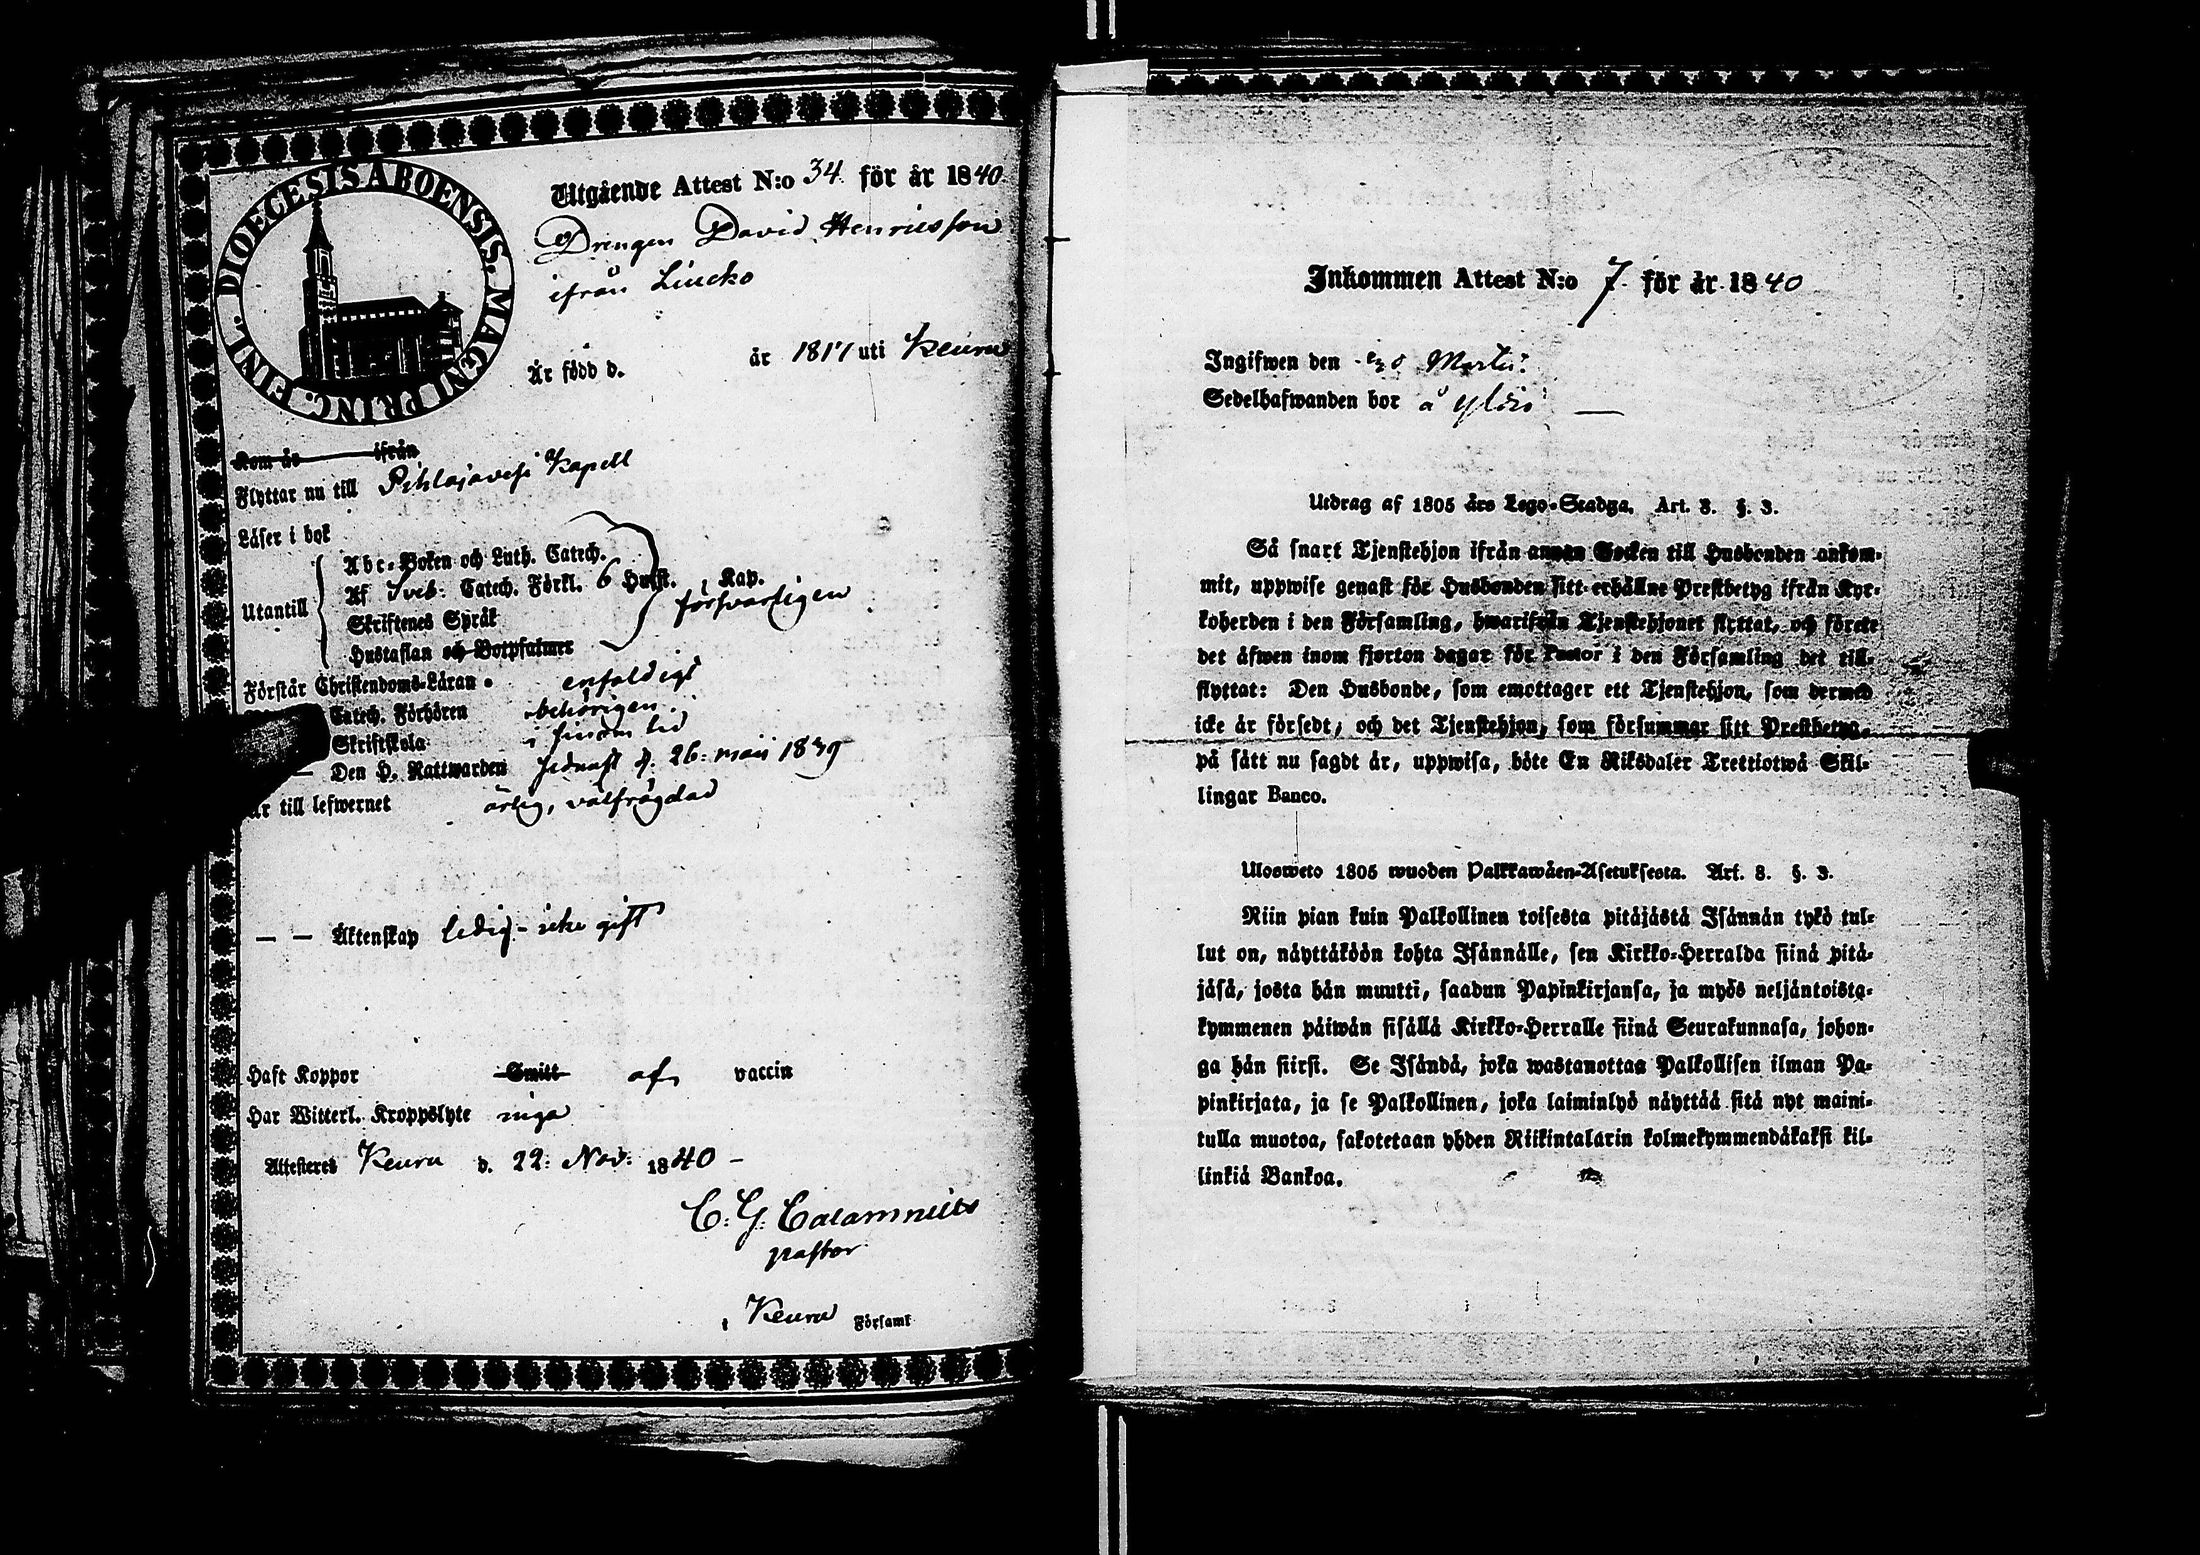 DIOECESIS ABOENSIS. MAGNI PRINC. FINL.
Utgående Attest N:o 34 för år 1840.
Drengen David Henricsson
ifrån Liucko
Är född d. år 1817 uti Keuru
Kom år ifrån
Flyttar nu till Pihlajavesi Kapell
Läser i bok
Utantill
Abc-Boken och Luth. Catech.
Af Sveb: Catech. Förkl. 6 Hufst. Kap.
Skriftenes Språk
försvarligen
Hustaflan och Botpsalmer
Förstår Christendoms-Läran enfaldigt
Catech. Förhören behörigen
Skriftskola i sinom tid
Den H. Nattwarden sednast d: 26: maii 1839
är till lefwernet ärlig, välfrägdad
— — Äktenskap ledig - icke gift
Haft Koppor Smitt af vaccin
Har Witterl. Kroppslyte inga
Attesteres Keuru d. 22: Nov: 1840 –
C: G: Calamnius
pastor
i Keuru Församl
Inkommen Attest N:o 7. för år 1840
Ingifwen den
Sedelhafwanden bor å
Utdrag af 1805 års Lego-Stadga. Art. 8. §. 3.
Så snart Tjenstehjon ifrån annan Socken till Husbonden ankom-
mit, uppwise genast för Husbonden sitt erhållne Prestbetyg ifrån Kyr-
koherden i den Församling, hwarifrån Tjenstehjonet flyttat, och förete
det äfwen inom fjorton dagar för Pastor i den Församling det till-
flyttat: Den Husbonde, som emottager ett Tjenstehjon, som dermed
icke är försedt, och det Tjenstehjon, som försummar sitt Prestbetyg,
på sätt nu sagdt är, uppwisa, böte En Riksdaler Trettiotwå Skil-
lingar Banco.
Ulosweto 1805 wuoden Palkkawäen-Asetuksesta. Art. 8. §. 3.
Niin pian kuin Palkollinen toisesta pitäjästä Isännän tykö tul-
lut on, näyttäköön kohta Isännälle, sen Kirkko-Herralda siinä pitä-
jäsä, josta hän muutti, saadun Papinkirjansa, ja myös neljäntoista-
kymmenen päiwän sisällä Kirkko-Herralle siinä Seurakunnasa, johon-
ga hän siirsi. Se Isändä, joka wastanottaa Palkollisen ilman Pa-
pinkirjata, ja se Palkollinen, joka laiminlyö näyttää sitä nyt maini-
tulla muotoa, sakotetaan yhden Riikintalarin kolmekymmendäkaksi kil-
linkiä Bankoa.